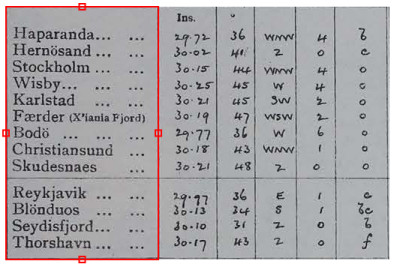 Ins. °
Haparanda... ... 29.72 36 WNW 4 b
Hernösand... ... 30.02 41 Z 0 c
Stockholm ... ... 30.15 44 WNW 4 0
Wisby... ... ... 30.25 45 W 4 0
Karlstad ... ... 30.21 45 SW 2 0
Færder (X'iania Fjord) 30.19 47 WSW 2 0
Bodö ... ... ... 29.77 36 W 6 0
Christiansund ... 30.18 43 WNW 1 0
Skudesnaes ... 30.21 48 Z 0 0
Reykjavik ... ... 29.97 36 E 1 c
Blönduos ... ... 30.13 34 S 1 bc
Seydisfjord... ... 30.10 31 Z 0 b
Thorshavn ... ... 30.17 43 Z 0 f